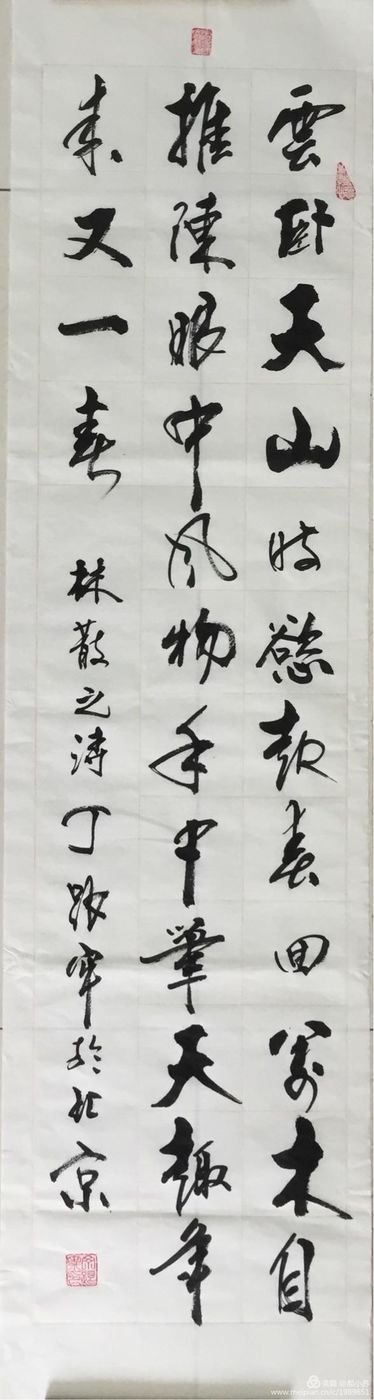 雲卧天山時慾春回萬木自
推陳眼中風物手中筆天趣年
来又一春 林散之詩 丁於北京
美篇
www.meipian.cn/c/1989651